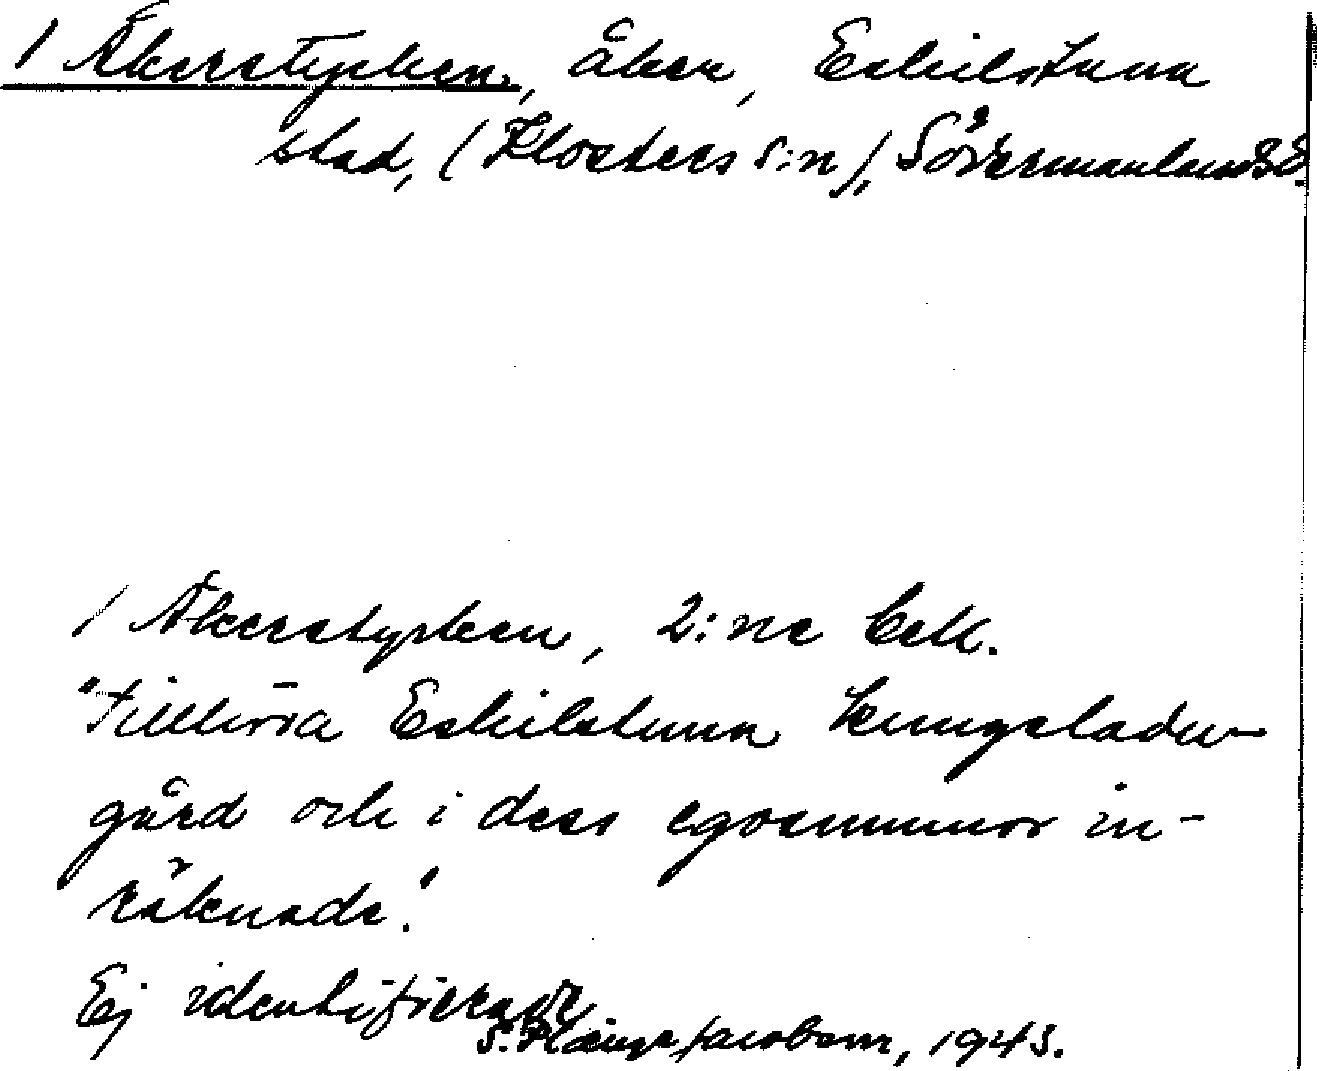 / Åkerstycken, åker, Eskilstuna
stad, (Klosters s:n), Södermanlands
/ Åkerstycken, 2:ne
"Tillhöra Eskilstuna kungsladu-
gård och i dess egosummor in-
räknade."
Ej identifierade
S. Jacobson, 1943.